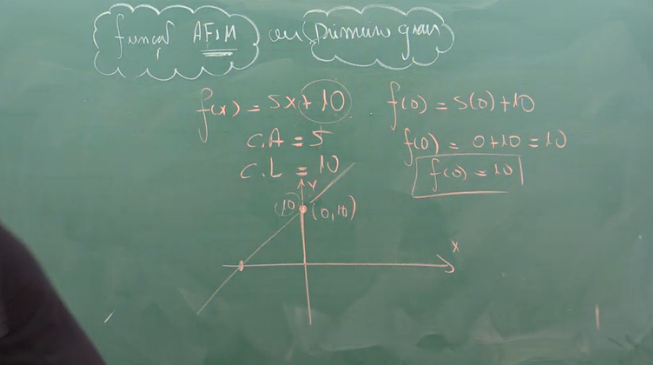 função AFIM ou Primeiro grau
f(x) = 5x+10
C.A = 5
C.L = 10
f(0) = 5(0)+10
f(0) = 0+10 = 10
f(0) = 10
y
10 (0,10)
x